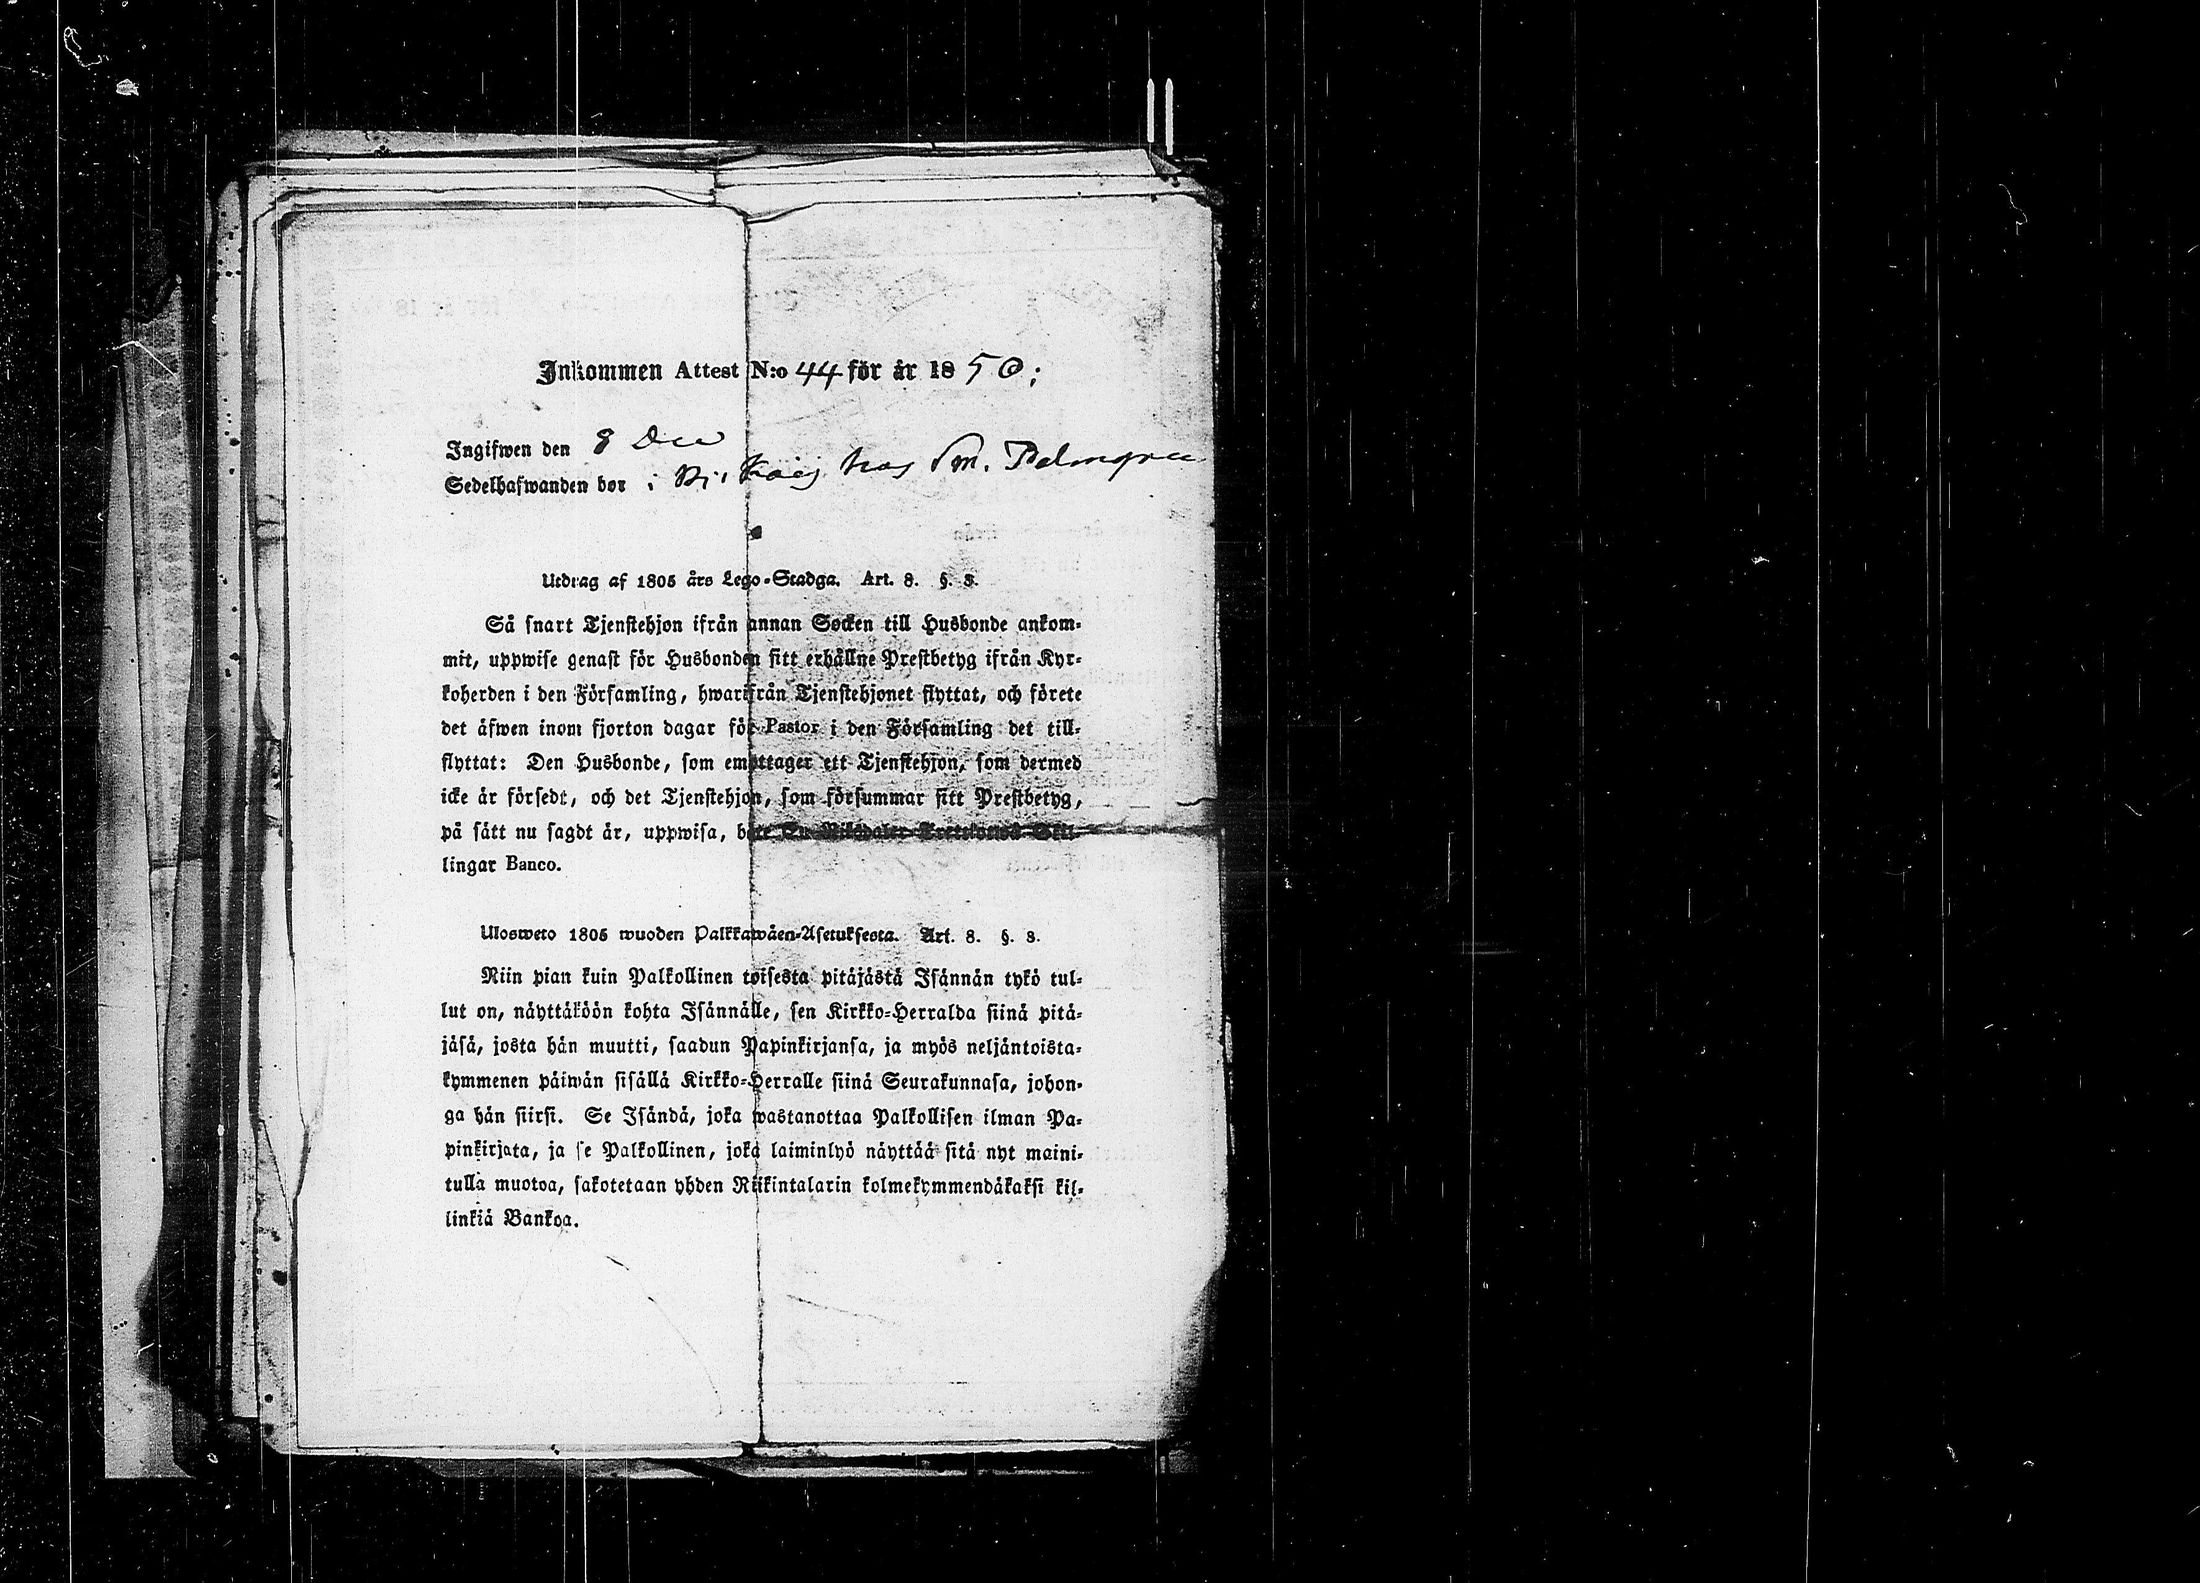 Inkommen Attest N:o 44 för år 1850;
Ingifwen den 8 Dec
Sedelhafwanden bor i hos Sm. Palmgren
Utdrag af 1805 års Lego-Stadga. Art. 8. §. 3.
Så snart Tjenstehjon ifrån annan Socken till Husbonde ankom-
mit, uppwise genast för Husbonden sitt erhållne Prestbetyg ifrån Kyr-
koherden i den Församling, hwarifrån Tjenstehjonet flyttat, och förete
det äfwen inom fjorton dagar för Pastor i den Församling det till-
flyttat: Den Husbonde, som emottager ett Tjenstehjon, som dermed
icke är försedt, och det Tjenstehjon, som försummar sitt Prestbetyg,
på sätt nu sagdt är, uppwisa, böte En Riksdaler Trettiotwå Skil-
lingar Banco.
Ulosweto 1805 wuoden Palkkawäen-Asetuksesta. Art. 8. §. 3.
Niin pian kuin Palkollinen toisesta pitäjästä Isännän tykö tul-
lut on, näyttäköön kohta Isännälle, sen Kirkko-Herralda siinä pitä-
jäsä, josta hän muutti, saadun Papinkirjansa, ja myös neljäntoista-
kymmenen päiwän sisällä Kirkko-Herralle siinä Seurakunnasa, johon-
ga hän siirsi. Se Isändä, joka wastanottaa Palkollisen ilman Pa-
pinkirjata, ja se Palkollinen, joka laiminlyö näyttää sitä nyt maini-
tulla muotoa, sakotetaan yhden Riikintalarin kolmekymmendäkaksi kil-
linkiä Bankoa.